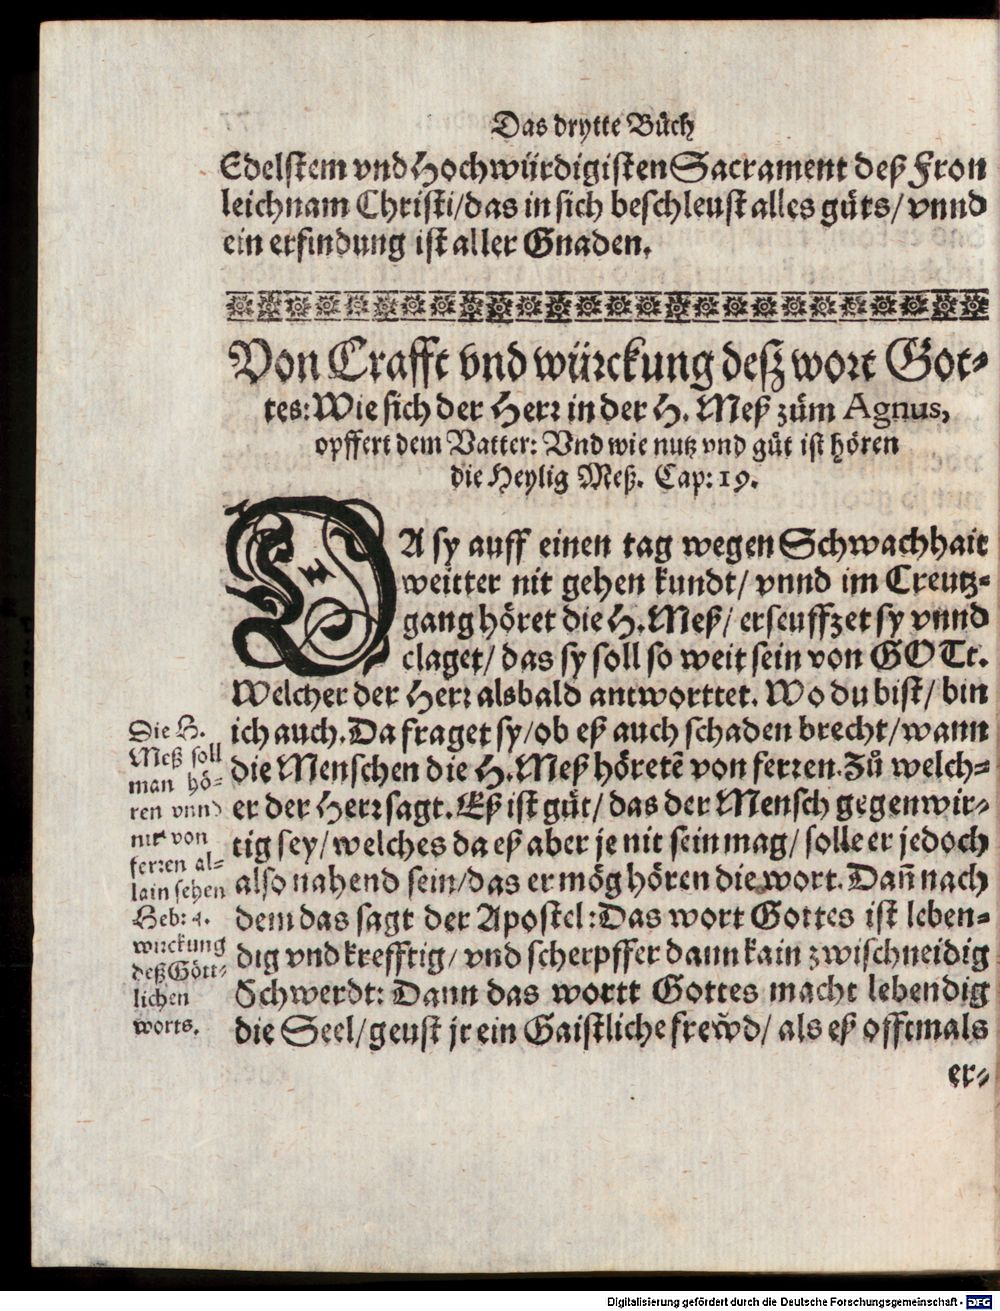 Das drytte Bůch
Edelstem vnd Hochwürdigisten Sacrament deß Fron
leichnam Christi/das in sich beschleust alles gůts/ vnnd
ein erfindung ist aller Gnaden.
Von Crafft vnd würckung deß wort Got-
tes: Wie sich der Herr in der H. Meß zům Agnus,
opffert dem Vatter: Vnd wie nutz vnd gůt ist hören
die Heylig Meß. Cap: 19.
DA sy auff einen tag wegen Schwachhait
weitter nit gehen kundt/ vnnd im Creutz-
gang höret die H. Meß/ erseuffzet sy vnnd
claget/ das sy soll so weit sein von GOTt.
Welcher der Herr alsbald antworttet. Wo du bist/ bin
ich auch. Da fraget sy/ob eß auch schaden brecht/wann
die Menschen die H. Meß höretē von ferzen. Zů welch-
er der Herr sagt. Eß ist gůt/ das der Mensch gegenwir-
tig sey/welches da eß aber je nit sein mag/ solle er jedoch
also nahend sein/das er mög hören die wort. Dañ nach
dem das sagt der Apostel: Das wort Gottes ist leben-
dig vnd krefftig/ vnd scherpffer dann kain zwischneidig
Schwerdt: Dann das wortt Gottes macht lebendig
die Seel/geust jr ein Gaistliche frewd/ als eß offtmals
er-
Die H.
Meß soll
man hö-
ren vnnd
nit von
ferren al-
lain sehen
Heb: 4.
würckung
deß Gött-
lichen
worts.
Digitalisierung gefördert durch die Deutsche Forschungsgemeinschaft - DFG